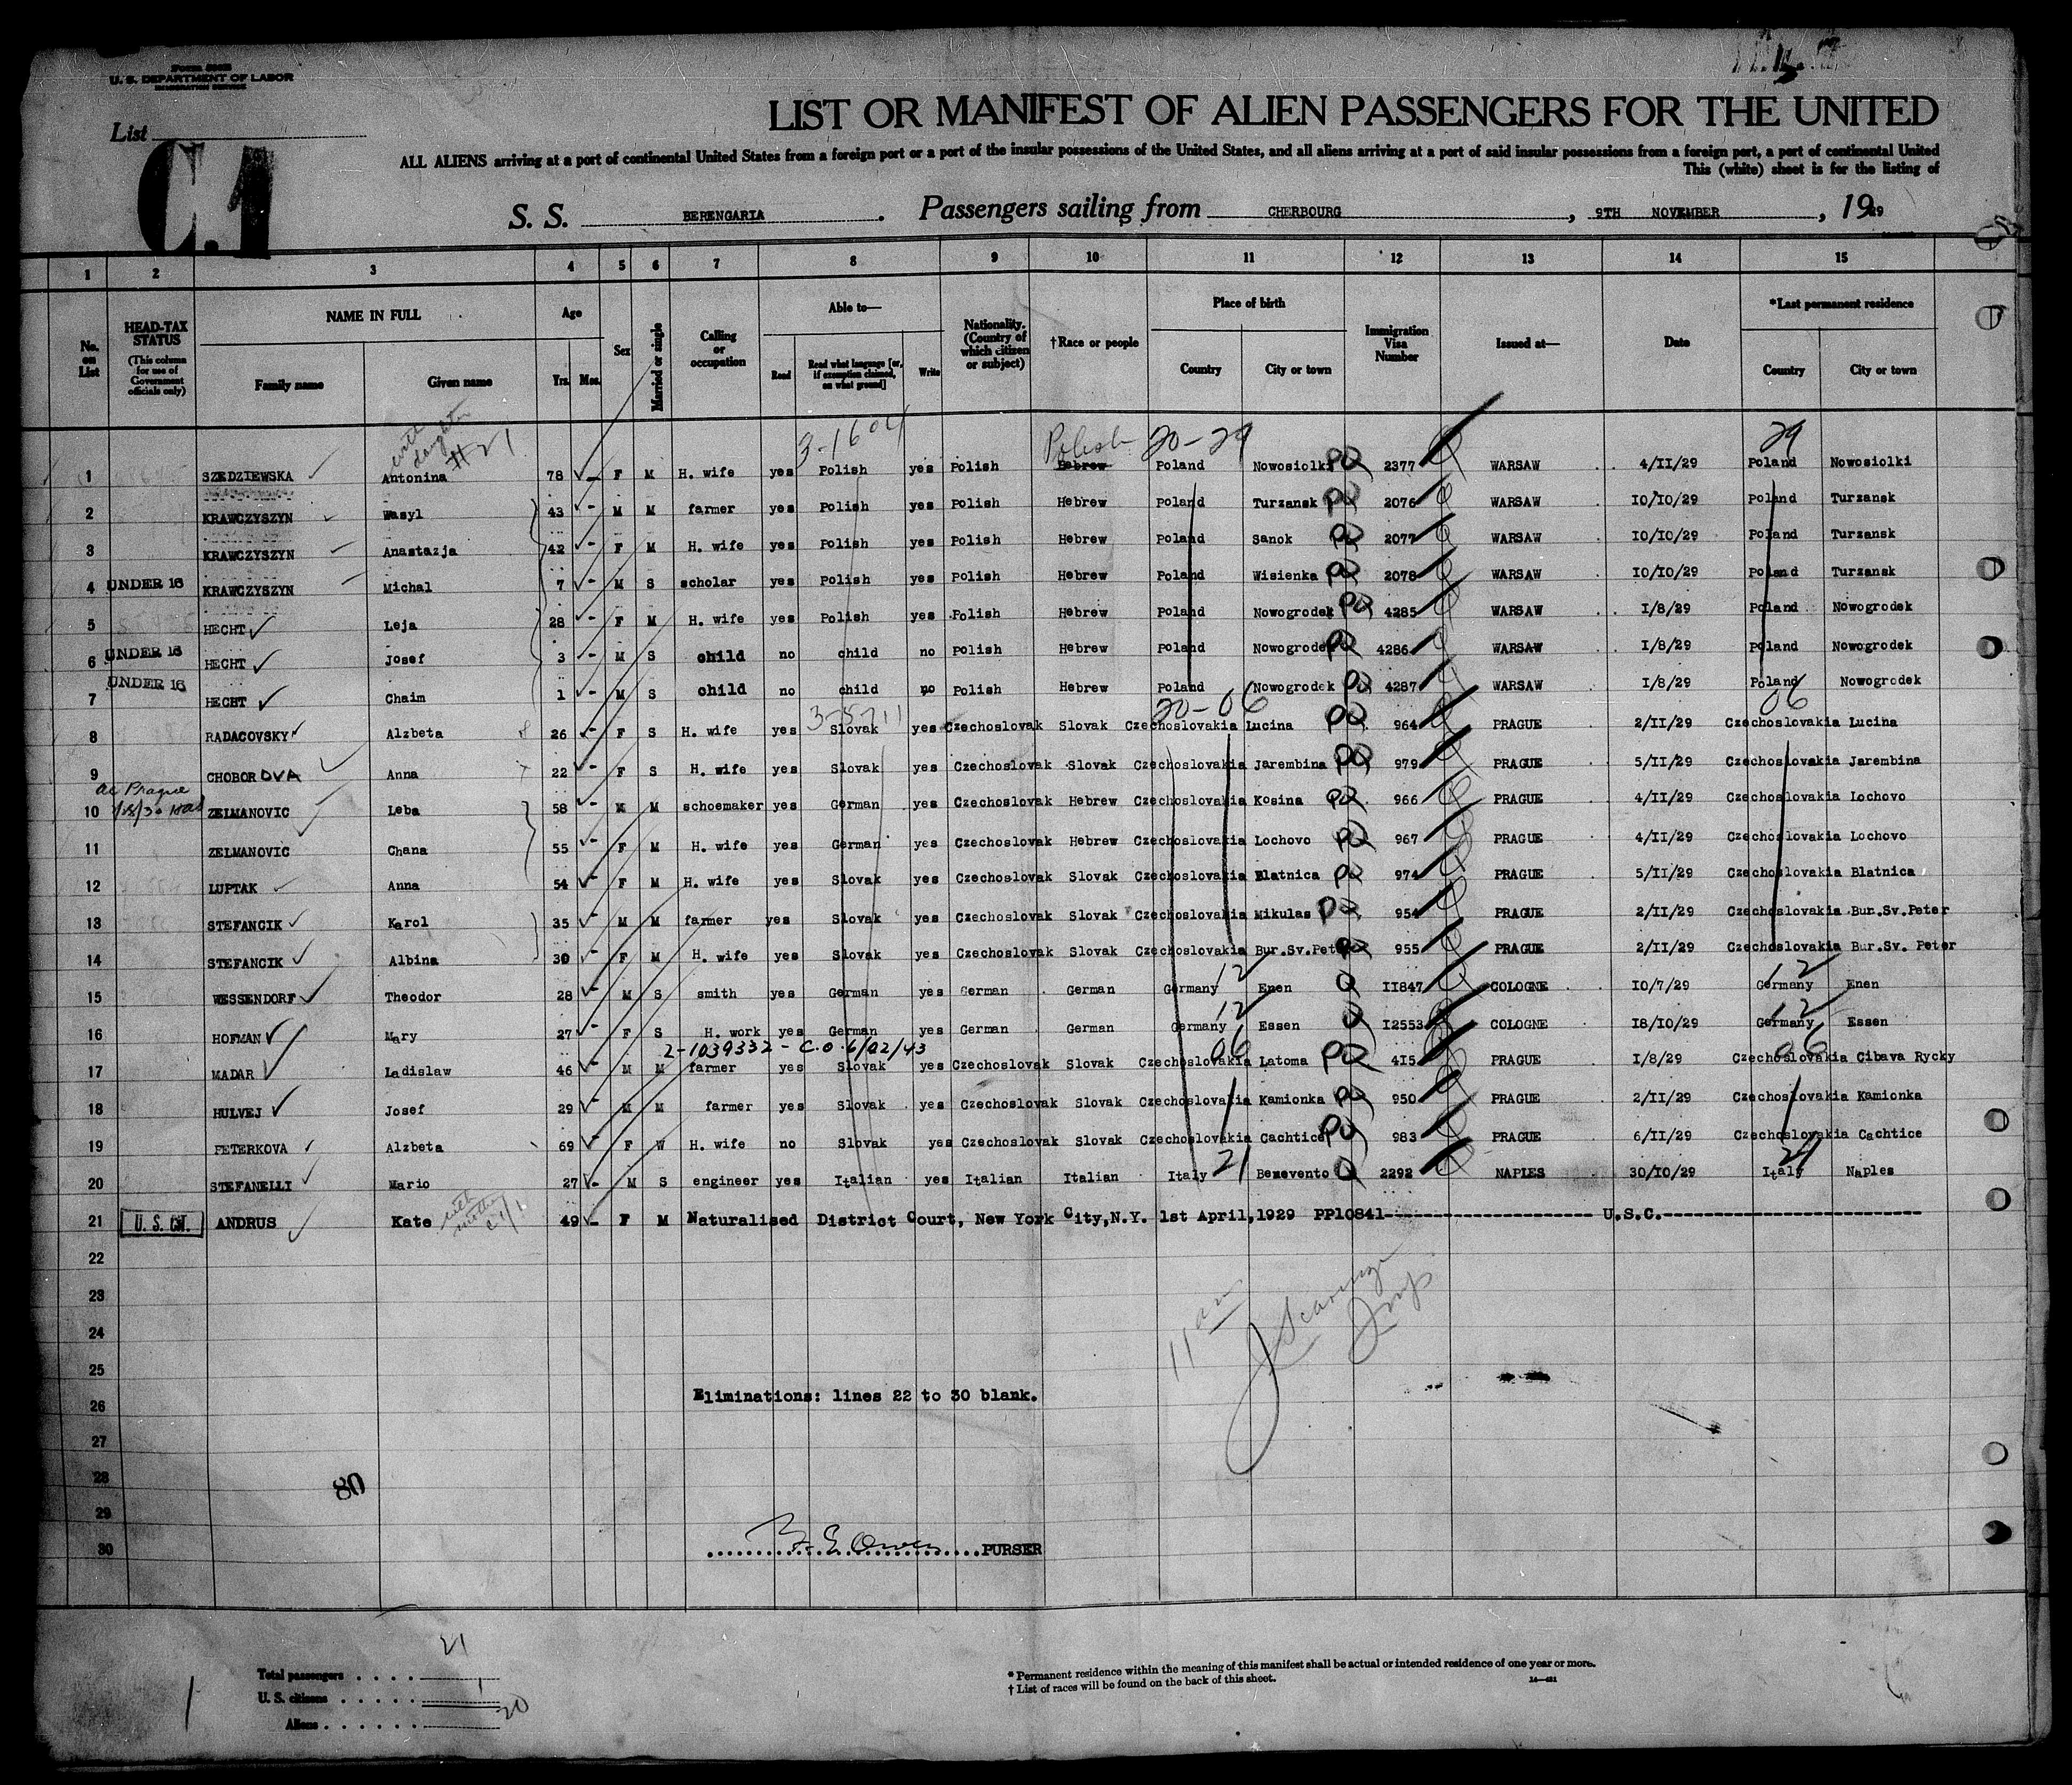 U. S. DEPARTMENT OF LABOR
IMMIGRATION SERVICE
List
C.1
LIST OR MANIFEST OF ALIEN PASSENGERS FOR THE UNITED
ALL ALIENS arriving at a port of continental United States from a foreign port or a port of the insular possessions of the United States, and all aliens arriving at a port of said insular possessions from a foreign port, a port of continental United
This (white) sheet is for the listing of
S. S. BERENGARIA. Passengers sailing from CHERBOURG, 9TH NOVEMBER, 1929
1 2 3 4 5 6 7 8 9 10 11 12 13 14 15
No. on List
HEAD-TAX STATUS
(This column for use of Government officials only)
NAME IN FULL
Family name Given name
Age
Yrs. Mos.
Sex
Married or single
Calling or occupation
Able to—
Read Read what language [or, if exemption claimed, on what ground] Write
Nationality. (Country of which citizen or subject)
†Race or people
Place of birth
Country City or town
Immigration Visa Number
Issued at—
Date
*Last permanent residence
Country City or town
with daughter #21
3-1604 Polish 20-29 29
1 SZEDZIEWSKA Antonina 78 F M H. wife yes Polish yes Polish Hebrew Poland Nowosiolki 2377 WARSAW 4/II/29 Poland Nowosiolki
2 KRAWCZYSZYN Wasyl 43 M M farmer yes Polish yes Polish Hebrew Poland Turzansk 2076 WARSAW IO/IO/29 Poland Turzansk
3 KRAWCZYSZYN Anastazja 42 F M H. wife yes Polish yes Polish Hebrew Poland Sanok 2077 WARSAW IO/IO/29 Poland Turzansk
4 UNDER 16 KRAWCZYSZYN Michal 7 M S scholar yes Polish yes Polish Hebrew Poland Wisienka 2078 WARSAW IO/IO/29 Poland Turzansk
5 HECHT Leja 28 F M H. wife yes Polish yes Polish Hebrew Poland Nowogrodek 4285 WARSAW I/8/29 Poland Nowogrodek
6 UNDER 16 HECHT Josef 3 M S child no child no Polish Hebrew Poland Nowogrodek 4286 WARSAW I/8/29 Poland Nowogrodek
7 UNDER 16 HECHT Chaim 1 M S child no child no Polish Hebrew Poland Nowogrodek 4287 WARSAW I/8/29 Poland Nowogrodek
3-5711 20-06 06
8 RADACOVSKY Alzbeta 26 F S H. wife yes Slovak yes Czechoslovak Slovak Czechoslovakia Lucina 964 PRAGUE 2/II/29 Czechoslovakia Lucina
9 CHOBOROVA Anna 22 F S H. wife yes Slovak yes Czechoslovak Slovak Czechoslovakia Jarembina 979 PRAGUE 5/II/29 Czechoslovakia Jarembina
ac Prague
10 ZELMANOVIC Leba 58 M M schoemaker yes German yes Czechoslovak Hebrew Czechoslovakia Kosina 966 PRAGUE 4/II/29 Czechoslovakia Lochovo
11 ZELMANOVIC Chana 55 F M H. wife yes German yes Czechoslovak Hebrew Czechoslovakia Lochovo 967 PRAGUE 4/II/29 Czechoslovakia Lochovo
12 LUPTAK Anna 54 F M H. wife yes Slovak yes Czechoslovak Slovak Czechoslovakia Blatnica 974 PRAGUE 5/II/29 Czechoslovakia Blatnica
13 STEFANCIK Karol 35 M M farmer yes Slovak yes Czechoslovak Slovak Czechoslovakia Mikulas 954 PRAGUE 2/II/29 Czechoslovakia Bur.Sv.Peter
14 STEFANCIK Albina 30 F M H. wife yes Slovak yes Czechoslovak Slovak Czechoslovakia Bur.Sv.Peter 955 PRAGUE 2/II/29 Czechoslovakia Bur.Sv. Peter
12 12
15 WESSENDORF Theodor 28 M S smith yes German yes German German Germany Enen II847 COLOGNE IO/7/29 Germany Enen
12 12
16 HOFMAN Mary 27 F S H. work yes German yes German German Germany Essen I2553 COLOGNE I8/IO/29 Germany Essen
2-1039332 - C.O. 6/02/43 06 06
17 MADAR Ladislaw 46 M M farmer yes Slovak yes Czechoslovak Slovak Czechoslovakia Latoma 4I5 PRAGUE I/8/29 Czechoslovakia Cibava Rycky
18 HULVEJ Josef 29 M M farmer yes Slovak yes Czechoslovak Slovak Czechoslovakia Kamionka 950 PRAGUE 2/II/29 Czechoslovakia Kamionka
19 PETERKOVA Alzbeta 69 F W H. wife no Slovak yes Czechoslovak Slovak Czechoslovakia Cachtice 983 PRAGUE 6/II/29 Czechoslovakia Cachtice
20 STEFANELLI Mario 27 M S engineer yes Italian yes Italian Italian Italy 21 Benevento 2292 NAPLES 30/IO/29 Italy 21 Naples
21 U. S. CIT. ANDRUS Kate with mother C 1/1 49 F M Naturalised District Court, New York City,N.Y. 1st April,1929 PP10841-------------------- U.S.C.-------------------------
22
23
24
11 am
25
Eliminations: lines 22 to 30 blank.
26
27
28
80
29
30
PURSER
Total passengers . . . . 21
U. S. citizens . . . . . 1
Aliens . . . . . . 20
* Permanent residence within the meaning of this manifest shall be actual or intended residence of one year or more.
† List of races will be found on the back of this sheet.